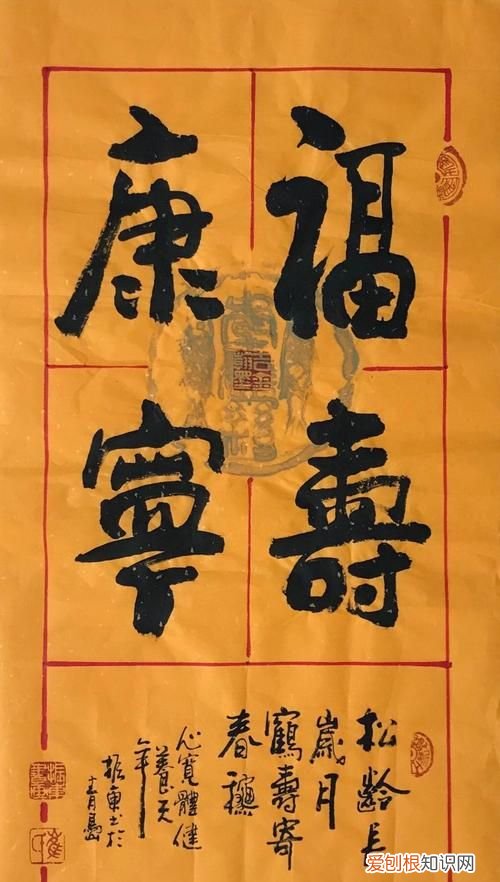 福壽
康寧
松齡长
歲月
鶴壽寄
春
心寬體健
養天
年
振東书於
爱刨根知识网